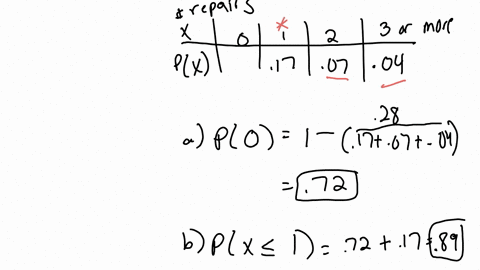 # repairs
X 0 1 2 3 or more
P(X) .17 .07 .04
.28
a) P(0) = 1 - (.17 + .07 + .04)
= .72
b) P(X ≤ 1) = .72 + .17 = .89